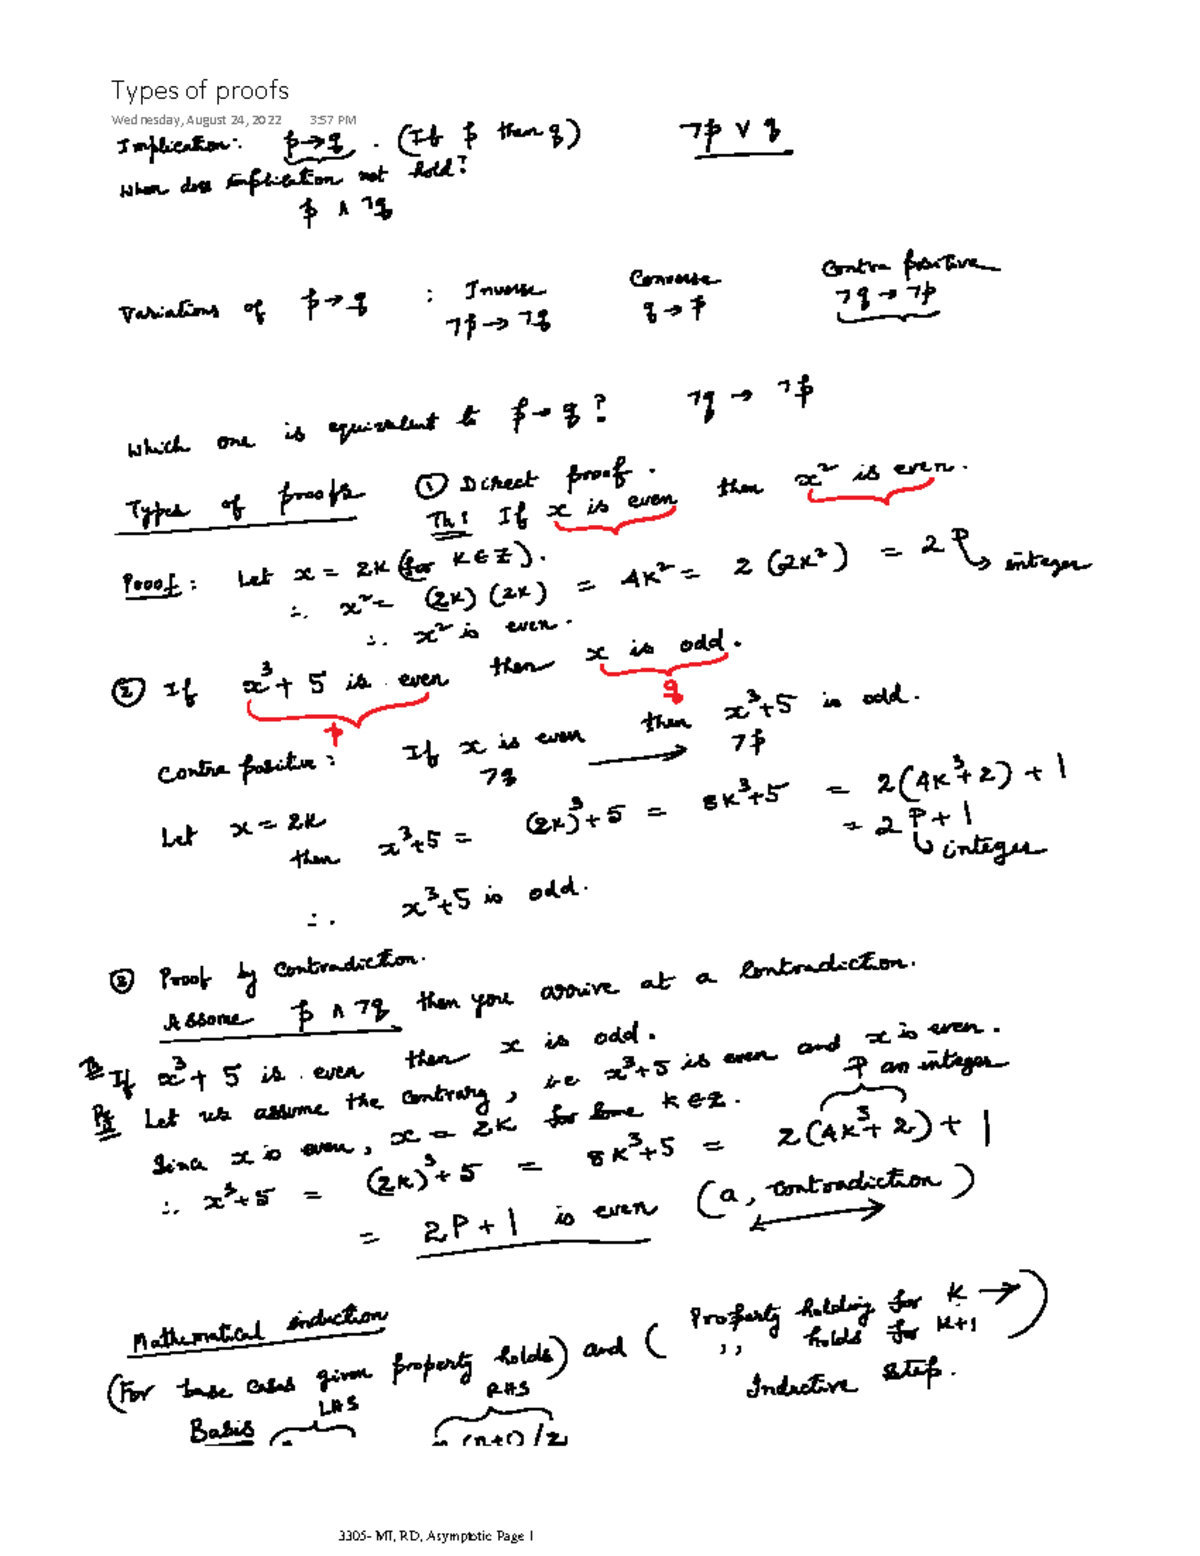 Types of proofs
Wednesday, August 24, 2022 3:57 PM
Implication: p→q . (If p then q) ¬p ∨ q
When does implication not hold?
p ∧ ¬q
Variations of p→q : Inverse Converse Contra positive
¬p→¬q q→p ¬q→¬p
Which one is equivalent to p→q? ¬q → ¬p
Types of proofs ① Direct proof.
Th: If x is even then x² is even.
Proof: Let x = 2K (for K∈Z).
∴ x² = (2K)(2K) = 4K² = 2(2K²) = 2P → integer
∴ x² is even.
② If x³+5 is even then x is odd.
p q
Contra positive: If x is even then x³+5 is odd.
¬q → ¬p
Let x = 2K
then x³+5 = (2K)³+5 = 8K³+5 = 2(4K³+2)+1
= 2P+1
↳ integer
∴ x³+5 is odd.
③ Proof by Contradiction.
Assume p ∧ ¬q then you arrive at a Contradiction.
Th If x³+5 is even then x is odd.
Pf Let us assume the contrary, i.e x³+5 is even and x is even.
Since x is even, x = 2K for some K∈Z. P an integer
∴ x³+5 = (2K)³+5 = 8K³+5 = 2(4K³+2)+1
= 2P+1 is even (a, contradiction)
Mathematical induction
(For base cases given property holds) and (Property holding for K →)
,, holds for K+1
Inductive step.
LHS RHS
Basis n(n+1)/2
3305- MI, RD, Asymptotic Page 1